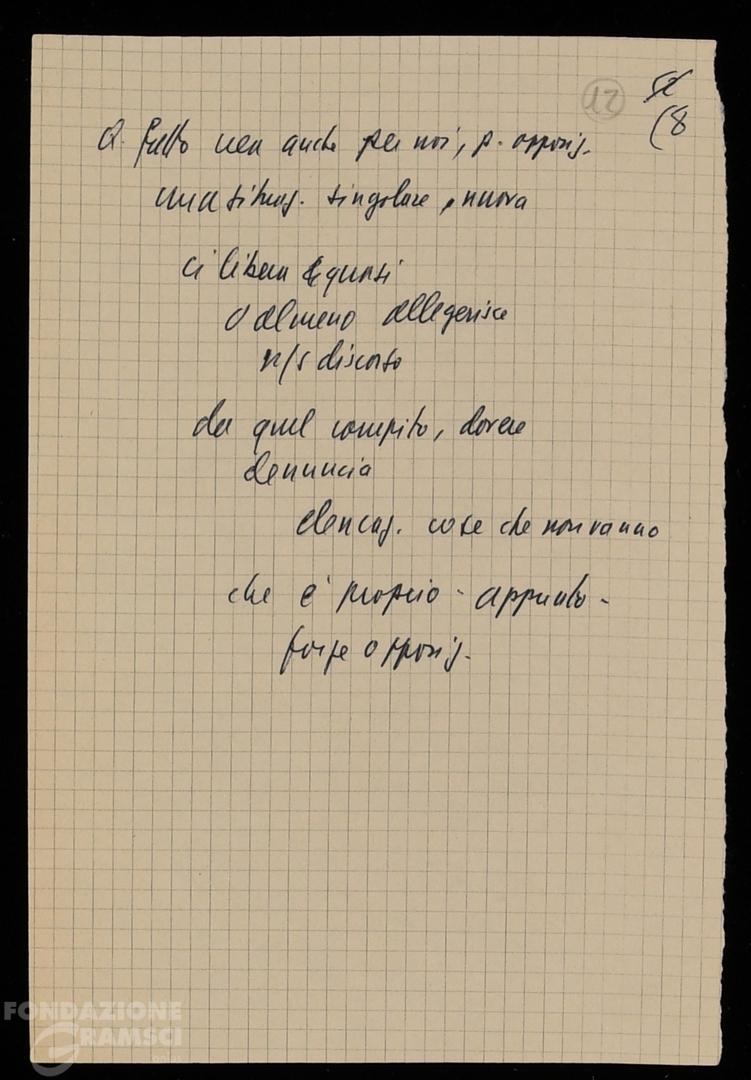 12
(8
Q. fatto crea anche per noi, p. opposiz.
una situaz. singolare, nuova
ci libera quasi
o almeno alleggerisce
n/s discorso
da quel compito, dovere
denuncia
elencaz. cose che non vanno
che è proprio - appunto -
forze opposiz.
FONDAZIONE
GRAMSCI